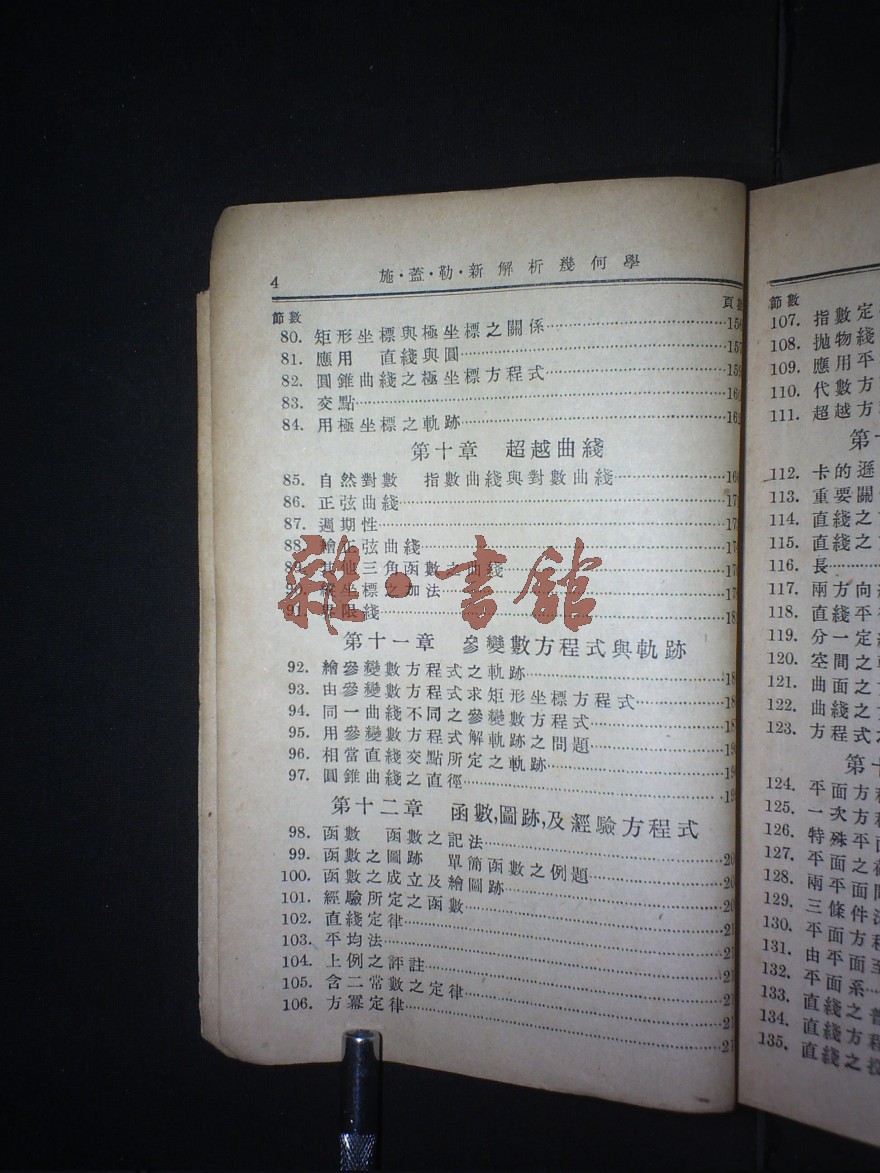 4
施·蓋·勒·新解析幾何學
節數 頁
80. 矩形坐標與極坐標之關係 15
81. 應用 直綫與圓 157
82. 圓錐曲綫之極坐標方程式 15
83. 交點 16
84. 用極坐標之軌跡 16
第十章 超越曲綫
85. 自然對數 指數曲綫與對數曲綫 16
86. 正弦曲綫 17
87. 週期性 17
88. 繪正弦曲綫 17
89. 其他三角函數之曲綫 17
90. 縱坐標之加法 17
91. 界限綫 18
第十一章 參變數方程式與軌跡
92. 繪參變數方程式之軌跡 18
93. 由參變數方程式求矩形坐標方程式 18
94. 同一曲綫不同之參變數方程式 18
95. 用參變數方程式解軌跡之問題 19
96. 相當直綫交點所定之軌跡 19
97. 圓錐曲綫之直徑 19
第十二章 函數,圖跡,及經驗方程式
98. 函數 函數之記法 20
99. 函數之圖跡 單簡函數之例題 20
100. 函數之成立及繪圖跡 20
101. 經驗所定之函數 21
102. 直綫定律 21
103. 平均法 21
104. 上例之評註 21
105. 含二常數之定律 21
106. 方冪定律 21
雜·書館
節數
107. 指數定
108. 拋物綫
109. 應用平
110. 代數方
111. 超越方
第十
112. 卡的遜
113. 重要關
114. 直綫之
115. 直綫之
116. 長
117. 兩方向
118. 直綫平
119. 分一定
120. 空間之
121. 曲面之
122. 曲綫之
123. 方程式
第十
124. 平面方
125. 一次方
126. 特殊平
127. 平面之
128. 兩平面
129. 三條件
130. 平面方
131. 由平面至
132. 平面系
133. 直綫之普
134. 直綫方程
135. 直綫之投